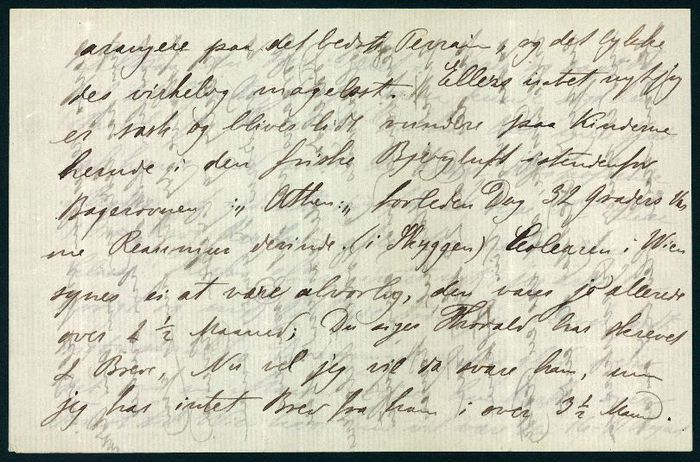 arangere paa det bedste Terrain, og det lykke
des virkelig mageløst. Ellers intet nyt, jeg
er rask og bliver lidt rundere paa Kinderne
herude i den friske Bjergluft istedenfor
Bagerovnen :,, Athen:,, forleden Dag 32 Graders Var
me Reaumur derinde. (i Skyggen) Coleraen i Wien
synes ei at være alvorlig, den varer jo allerede
over 1 ½ Maaned; Du siger Thorald har skrevet
2 Breve, Nu vel jeg vil da svare ham, men
jeg har intet Brev fra ham i over 3 ½ Maaned.